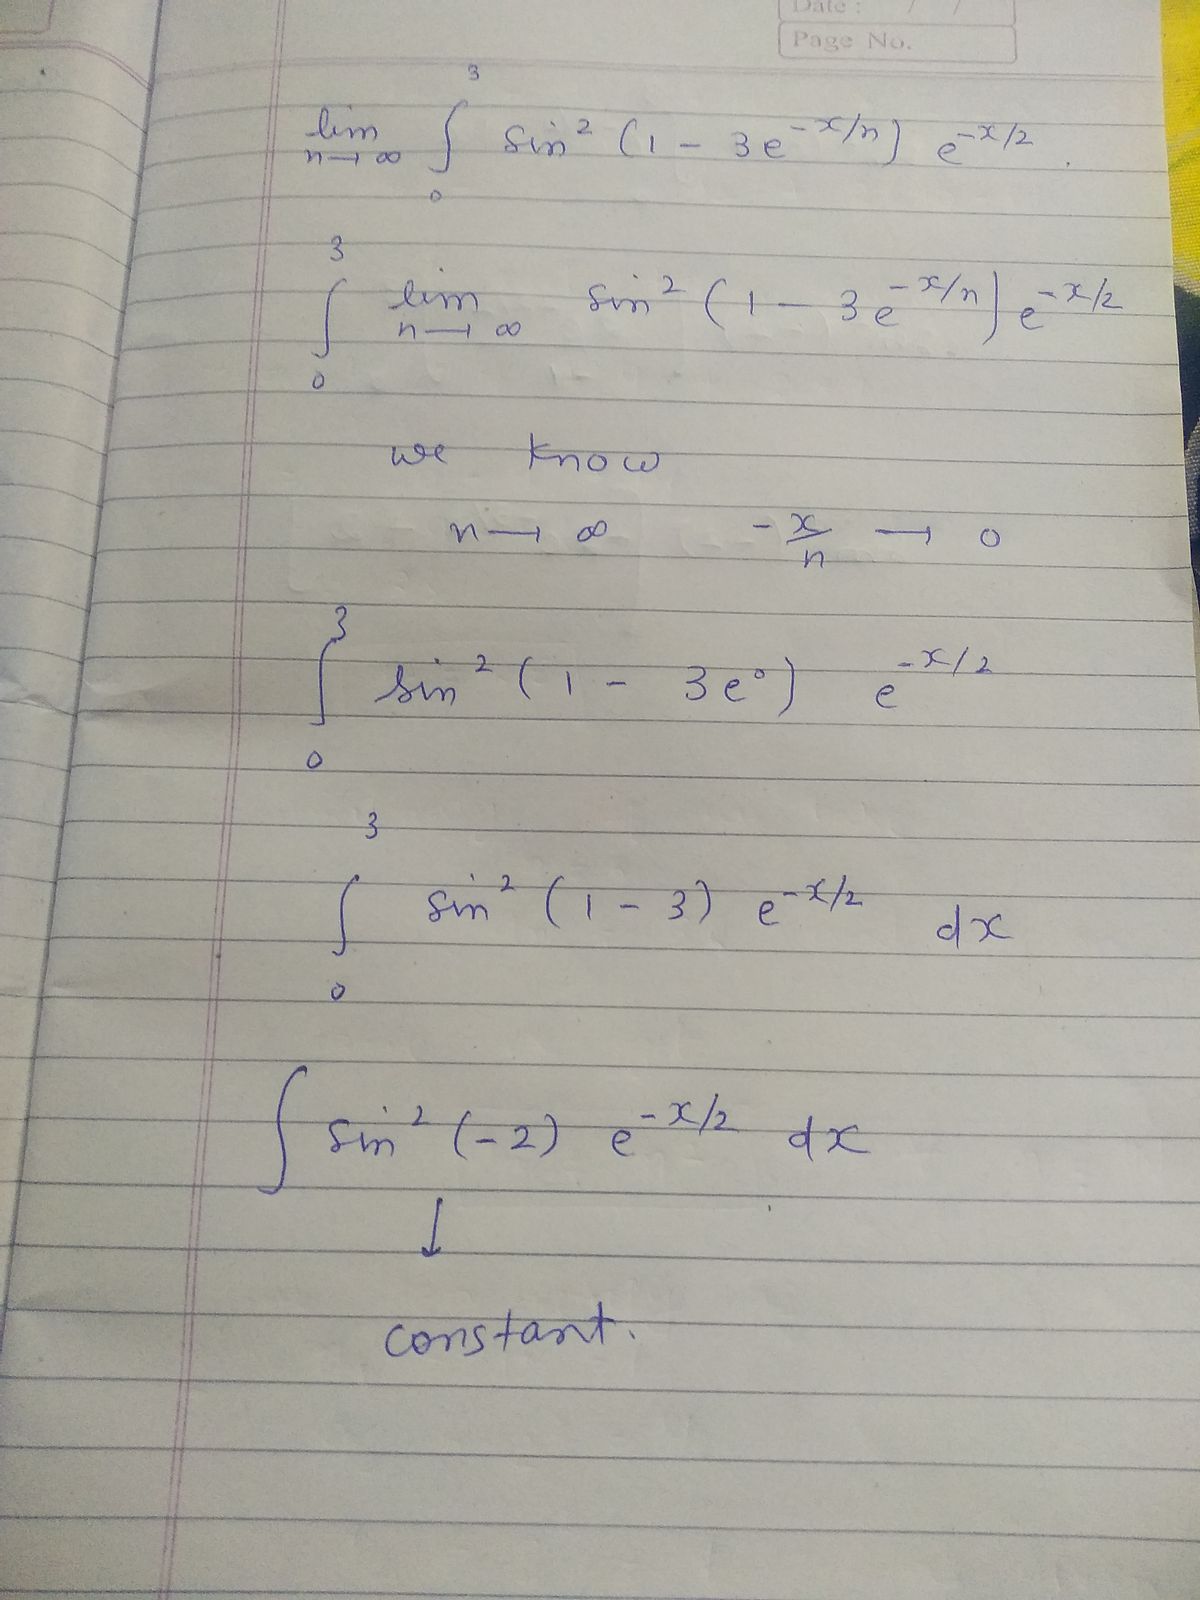 Date : / /
Page No.
lim n→∞ ∫₀³ sin² (1 - 3e^{-x/n}) e^{-x/2}.
∫₀³ lim n→∞ sin² (1 - 3e^{-x/n}) e^{-x/2}
we know
n → ∞ -x/n → 0
∫₀³ sin² (1 - 3e⁰) e^{-x/2}
∫₀³ sin² (1 - 3) e^{-x/2} dx
∫ sin² (-2) e^{-x/2} dx
↓
constant.